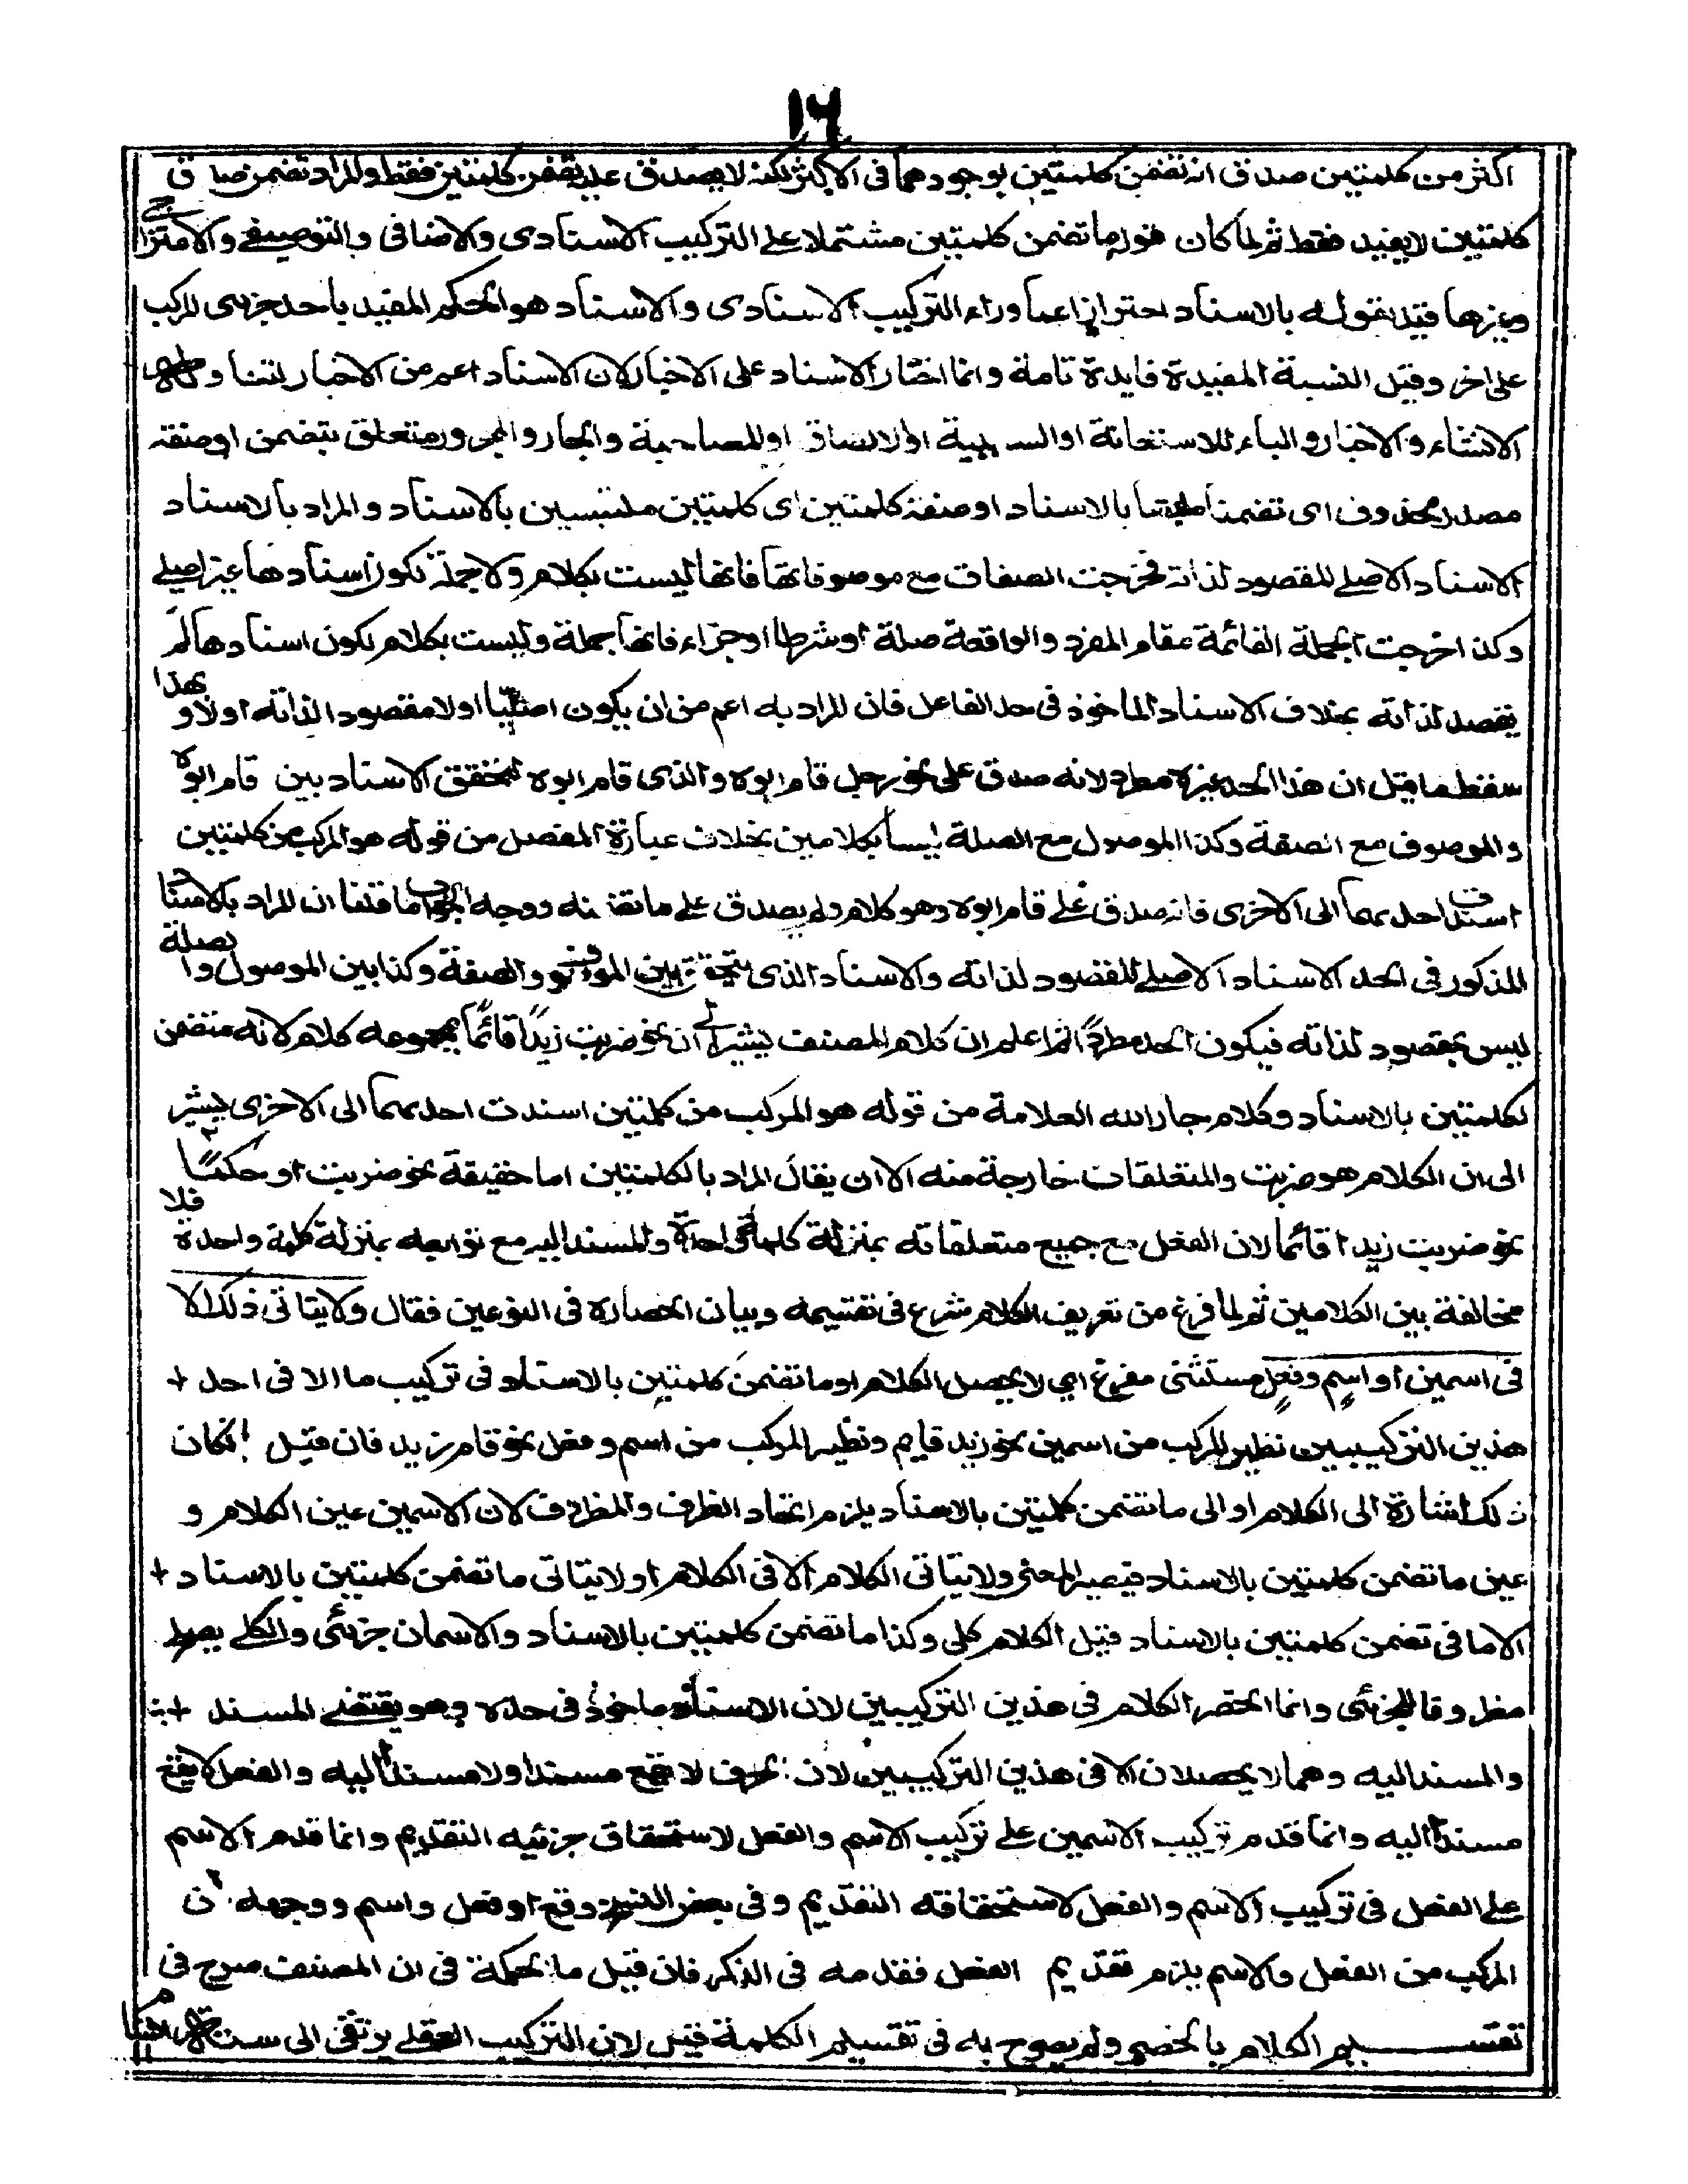 ١٦
اكثر من كلمتين صدق انه تضمن كلمتين بوجودهما فى الاكثر لكنه لا يصدق عليه تضمن كلمتين فقط والمراد تضمن
كلمتين لا يفيد فقط ثم لما كان قوله ما تضمن كلمتين مشتملا على التركيب الاسنادى والاضافى والتوصيفى والامتزاجى
وغيرها قيد بقوله بالاسناد احترازا عما وراء التركيب الاسنادى والاسناد هو الحكم المفيد باحد جزئى المركب
على اخر وقيل النسبة المفيدة فايدة تامة وانما اختار الاسناد على الاخبار لان الاسناد اعم من الاخبار
الانشاء والاخبار والباء للاستعانة او السببية او الالصاق او للمصاحبة والجار والمجرور متعلق بتضمن او صفة
مصدر محذوف اى تضمنا ملتبسا بالاسناد او صفة كلمتين اى كلمتين ملتبسين بالاسناد والمراد بالاسناد
الاسناد الاصلى المقصود لذاته فخرجت الصفات مع موصوفاتها فانها ليست بكلام ولا جملة لكون اسنادها غير اصلى
وكذا خرجت الجملة القائمة مقام المفرد والواقعة صلة او شرطا او جزاء فانها جملة وليست بكلام لكون اسنادها لم
يقصد لذاته بخلاف الاسناد الماخوذ فى حد الفاعل فان المراد به اعم من ان يكون اصليا اولا مقصودا لذاته اولا وبهذا
سقط ما قيل ان هذا الحد غير مطرد لانه صدق على نحو رجل قام ابوه والذى قام ابوه لتحقق الاسناد بين قام ابوه
والموصوف مع الصفة وكذا الموصول مع الصلة ليسا بكلامين بخلاف عبارة المفصل من قوله هو المركب من كلمتين
اسندت احديهما الى الاخرى فانه صدق على قام ابوه وهو كلام ولم يصدق على ما تضمنه ووجه الجواب ما قلنا ان المراد بالاسناد
المذكور فى الحد الاسناد الاصلى المقصود لذاته والاسناد الذى يتحقق بين الموصوف والصفة وكذا بين الموصول والصلة
ليس بمقصود لذاته فيكون الحد مطردا ثم اعلم ان كلام المصنف يشير الى ان نحو ضربت زيدًا قائمًا بمجموعه كلام لانه متضمن
لكلمتين بالاسناد وكلام جار الله العلامة من قوله هو المركب من كلمتين اسندت احديهما الى الاخرى يشير
الى ان الكلام هو ضربت والمتعلقات خارجة منه الا ان يقال المراد بالكلمتين اما حقيقة نحو ضربت او حكمًا
نحو ضربت زيدا قائما لان الفعل مع جميع متعلقاته بمنزلة كلمة واحدة والمسند اليه مع توابعه بمنزلة كلمة واحدة فلا
مخالفة بين الكلامين ثم لما فرغ من تعريف الكلام شرع فى تقسيمه وبيان انحصاره فى النوعين فقال ولا يتاتى ذلك الا
فى اسمين او اسم وفعل مستثنى مفرغ اى لا يحصل الكلام او ما تضمن كلمتين بالاسناد فى تركيب ما الا فى احد
هذين التركيبين نظير المركب من اسمين نحو زيد قايم ونظير المركب من اسم وفعل نحو قام زيد فان قيل ان كان
ذلك اشارة الى الكلام او الى ما تضمن كلمتين بالاسناد يلزم اتحاد الظرف والمظروف لان الاسمين عين الكلام و
عين ما تضمن كلمتين بالاسناد فيصير المعنى ولا يتاتى الكلام الا فى الكلام او لا يتاتى ما تضمن كلمتين بالاسناد
الا ما فى تضمن كلمتين بالاسناد قيل الكلام كلى وكذا ما تضمن كلمتين بالاسناد والاسمان جزئى والكلى يصير
مظروفا للجزئى وانما انحصر الكلام فى هذين التركيبين لان الاسناد ماخوذ فى حده وهو يقتضى المسند
والمسند اليه وهما لا يحصلان الا فى هذين التركيبين لان الحرف لا يقع مسندا ولا مسندا اليه والفعل لا يقع
مسندا اليه وانما قدم تركيب الاسمين على تركيب الاسم والفعل لاستحقاق جزئيه التقديم وانما قدم الاسم
على الفعل فى تركيب الاسم والفعل لاستحقاقه التقديم وفى بعض النسخ وقع او فعل واسم ووجهه ان
المركب من الفعل والاسم يلزم تقديم الفعل فقدمه فى الذكر فان قيل ما الحكمة فى ان المصنف صرح فى
تقسيم الكلام بالحصر ولم يصرح به فى تقسيم الكلمة قيل لان التركيب العقلى يرتقى الى ستة